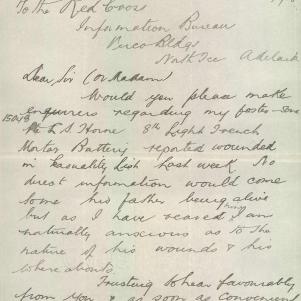 To the Red Cross
Information Bureau
Verco Bldgs
North Tce Adelaide
Dear Sir (or Madam)
Would you please make
enquirers regarding my foster-son
L S Horne 8th Light Trench
Mortar Battery reported wounded
in Casuality List last week No
direct information would come
some his father being alive
but as I have reared him I am
naturally anxcious as to the
nature of his wounds & his
where abouts.
Trusting to hear favourably
from you & as soon as convenient